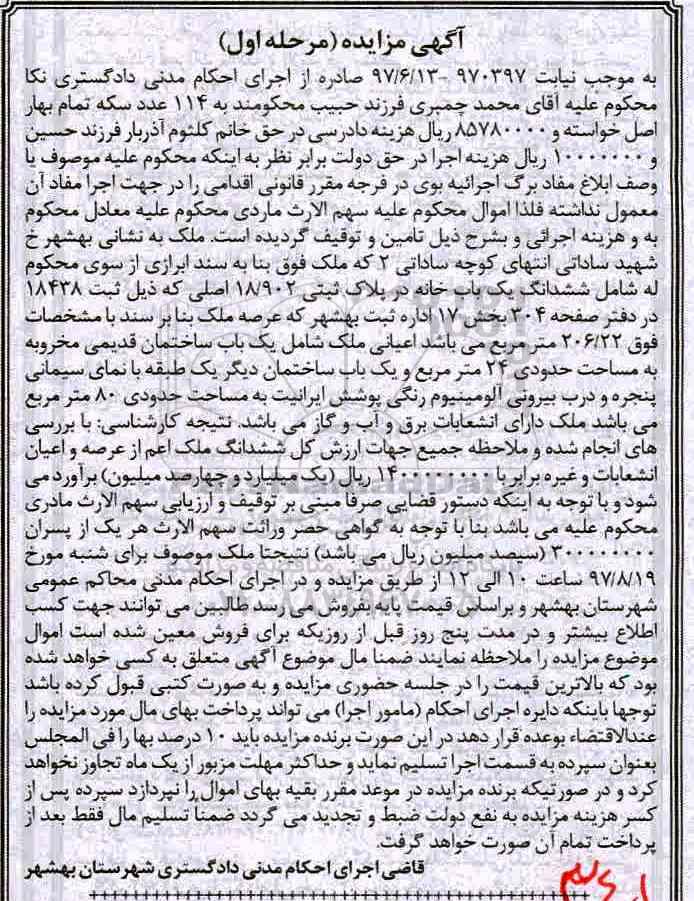 آگهی مزایده (مرحله اول)
به موجب نیابت ۹۷۰۳۹۷ -۹۷/۶/۱۳ صادره از اجرای احکام مدنی دادگستری نکا
محکوم علیه آقای محمد چمبری فرزند حبیب محکومند به ۱۱۴ عدد سکه تمام بهار
اصل خواسته و ۸۵۷۸۰۰۰۰ ریال هزینه دادرسی در حق خانم کلثوم آذربار فرزند حسین
و ۱۰۰۰۰۰۰۰ ریال هزینه اجرا در حق دولت برابر نظر به اینکه محکوم علیه موصوف یا
وصف ابلاغ مفاد برگ اجرائیه بوی در فرجه مقرر قانونی اقدامی را در جهت اجرا مفاد آن
معمول نداشته فلذا اموال محکوم علیه سهم الارث ماردی محکوم علیه معادل محکوم
به و هزینه اجرائی و بشرح ذیل تامین و توقیف گردیده است. ملک به نشانی بهشهر خ
شهید ساداتی انتهای کوچه ساداتی ۲ که ملک فوق بنا به سند ابرازی از سوی محکوم
له شامل ششدانگ یک باب خانه در پلاک ثبتی ۱۸/۹۰۲ اصلی که ذیل ثبت ۱۸۴۳۸
در دفتر صفحه ۳۰۴ بخش ۱۷ اداره ثبت بهشهر که عرصه ملک بنا بر سند با مشخصات
فوق ۲۰۶/۲۲ متر مربع می باشد اعیانی ملک شامل یک باب ساختمان قدیمی مخروبه
به مساحت حدودی ۲۴ متر مربع و یک باب ساختمان دیگر یک طبقه با نمای سیمانی
پنجره و درب بیرونی آلومینیوم رنگی پوشش ایرانیت به مساحت حدودی ۸۰ متر مربع
می باشد ملک دارای انشعابات برق و آب و گاز می باشد. نتیجه کارشناسی: با بررسی
های انجام شده و ملاحظه جمیع جهات ارزش کل ششدانگ ملک اعم از عرصه و اعیان
انشعابات و غیره برابر با ۱۴۰۰۰۰۰۰۰۰ ریال (یک میلیارد و چهارصد میلیون) برآورد می
شود و با توجه به اینکه دستور قضایی صرفا مبنی بر توقیف و ارزیابی سهم الارث مادری
محکوم علیه می باشد بنا با توجه به گواهی حصر وراثت سهم الارث هر یک از پسران
۳۰۰۰۰۰۰۰۰ (سیصد میلیون ریال می باشد) نتیجتا ملک موصوف برای شنبه مورخ
۹۷/۸/۱۹ ساعت ۱۰ الی ۱۲ از طریق مزایده و در اجرای احکام مدنی محاکم عمومی
شهرستان بهشهر و براساس قیمت پایه بفروش می رسد طالبین می توانند جهت کسب
اطلاع بیشتر و در مدت پنج روز قبل از روزیکه برای فروش معین شده است اموال
موضوع مزایده را ملاحظه نمایند ضمنا مال موضوع آگهی متعلق به کسی خواهد شده
بود که بالاترین قیمت را در جلسه حضوری مزایده و به صورت کتبی قبول کرده باشد
توجها باینکه دایره اجرای احکام (مامور اجرا) می تواند پرداخت بهای مال مورد مزایده را
عندالاقتضاء بوعده قرار دهد در این صورت برنده مزایده باید ۱۰ درصد بها را فی المجلس
بعنوان سپرده به قسمت اجرا تسلیم نماید و حداکثر مهلت مزبور از یک ماه تجاوز نخواهد
کرد و در صورتیکه برنده مزایده در موعد مقرر بقیه بهای اموال را نپردازد سپرده پس از
کسر هزینه مزایده به نفع دولت ضبط و تجدید می گردد ضمنا تسلیم مال فقط بعد از
پرداخت تمام آن صورت خواهد گرفت.
قاضی اجرای احکام مدنی دادگستری شهرستان بهشهر